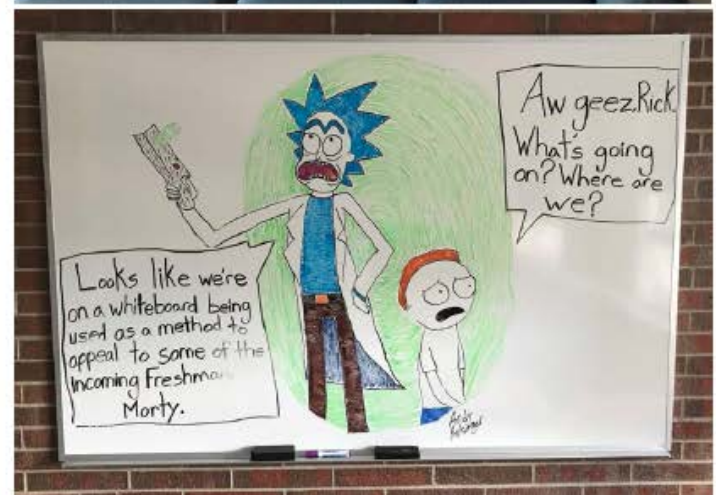 Aw geez Rick
What's going
on? Where are
we?
Looks like we're
on a whiteboard being
used as a method to
appeal to some of the
Incoming Freshman
Morty.